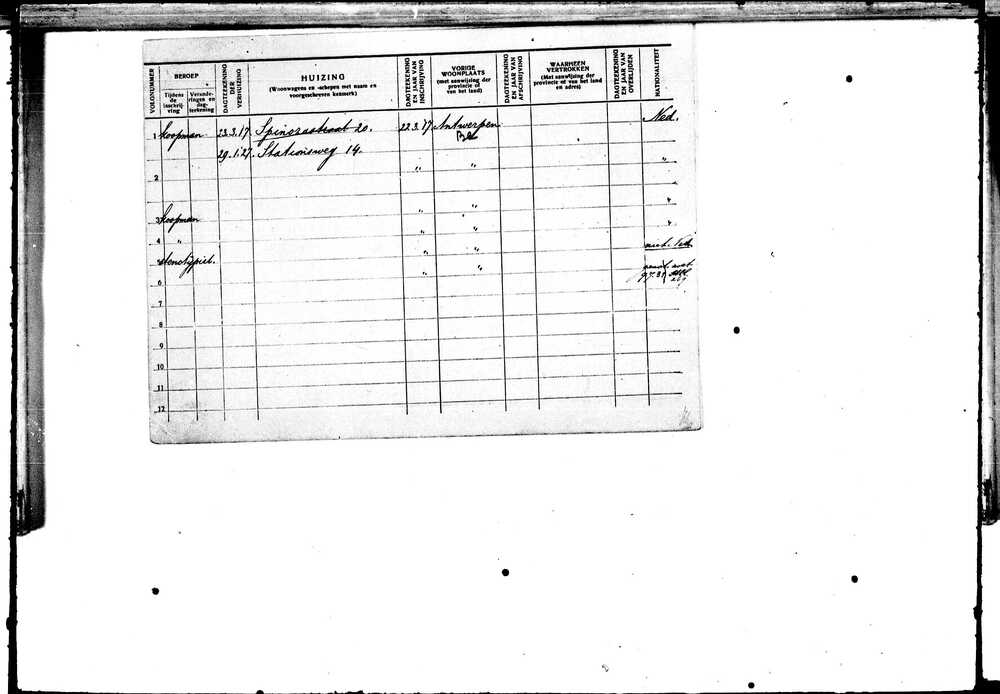 VOLGNUMMER
BEROEP
Tijdens de inschrijving
Veranderingen en dagteekening
DAGTEEKENING DER VERHUIZING
HUIZING
(Woonwagens en -schepen met naam en
voorgeschreven kenmerk)
DAGTEEKENING EN JAAR VAN INSCHRIJVING
VORIGE
WOONPLAATS
(met aanwijzing der
provincie of
van het land)
DAGTEEKENING EN JAAR VAN AFSCHRIJVING
WAARHEEN
VERTROKKEN
(Met aanwijzing der
provincie of van het land
en adres)
DAGTEEKENING EN JAAR VAN OVERLIJDEN
NATIONALITEIT
1 koopman 23.3.17. Spinozastraat 20. 22.3.17 Antwerpen Ned.
29.1.27. Stationsweg 14.
2 " " "
" " "
3 koopman " " "
4 " " "
5 stenotypist. " "
6
7
8
9
10
11
12